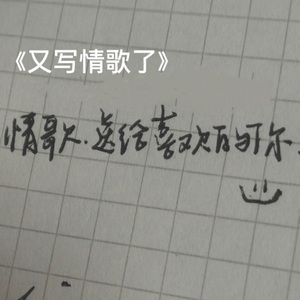 《又写情歌了》
情歌.送给喜欢的你.